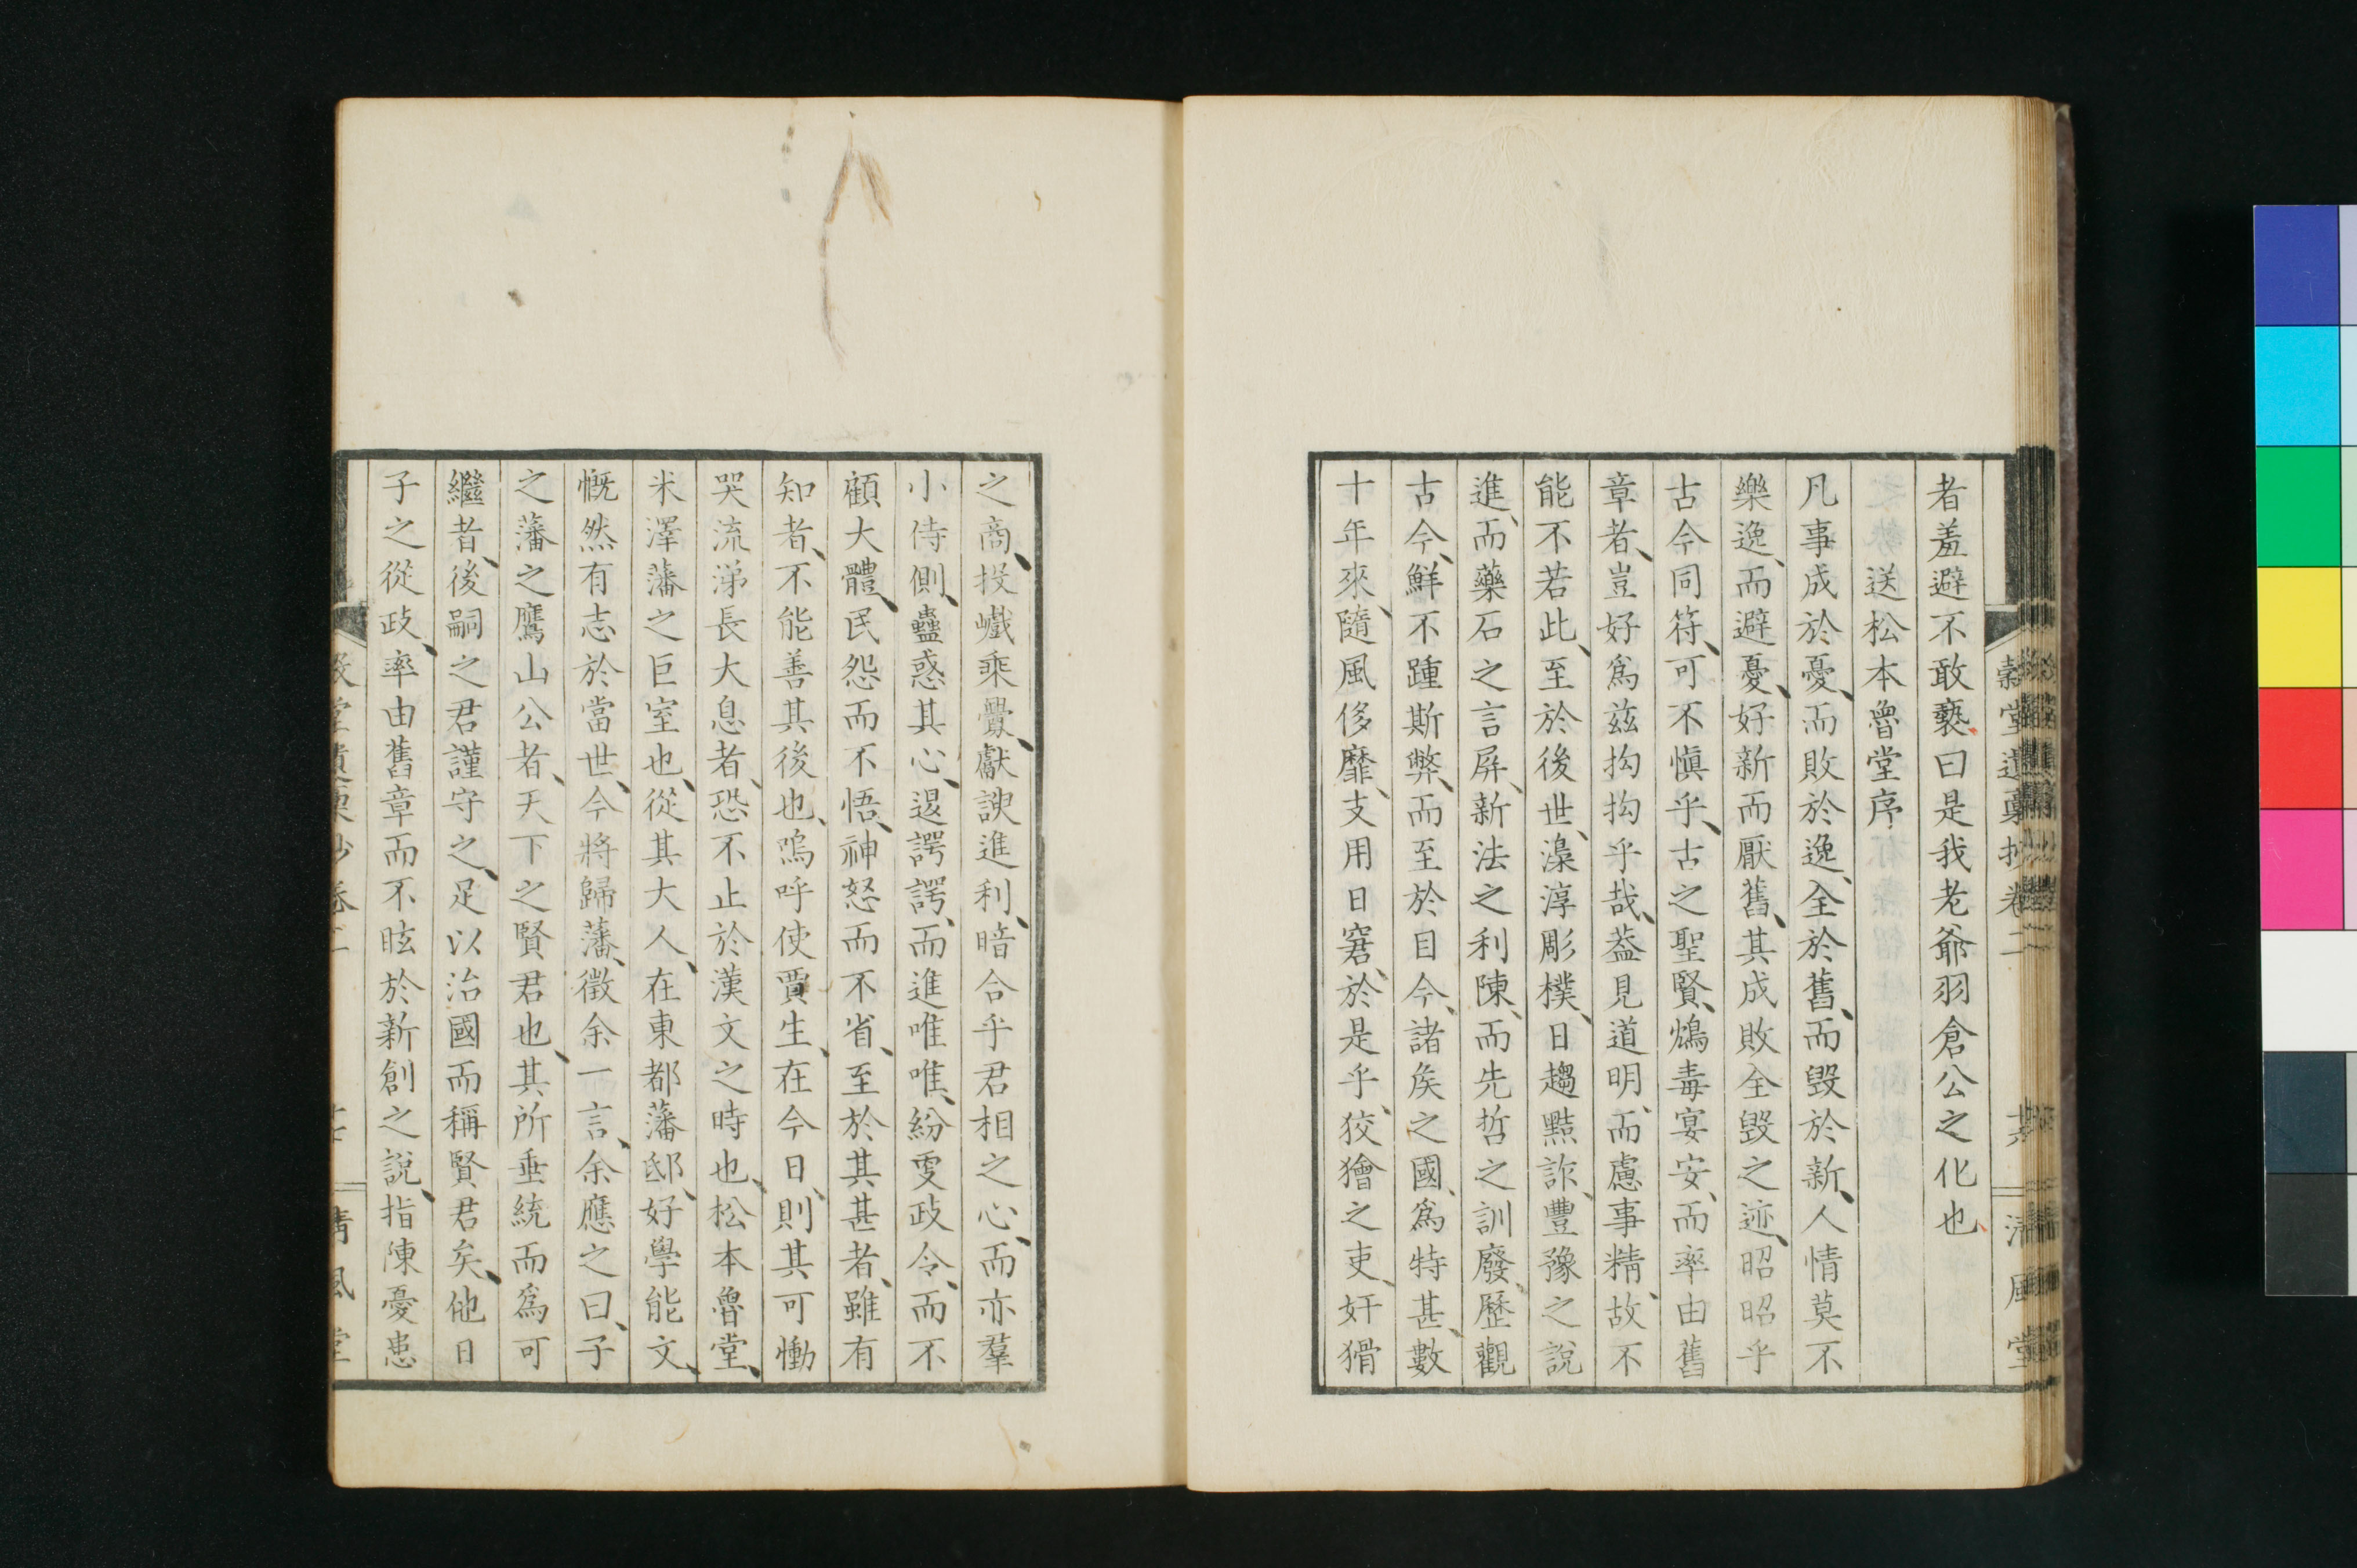 者羞避不敢褻曰是我老爺羽倉公之化也
送松本魯堂序
凡事成於憂、而敗於逸、全於舊、而毀於新、人情莫不
樂逸、而避憂、好新而厭舊、其成敗全毀之迹、昭昭乎
古今同符、可不愼乎、古之聖賢、鴆毒宴安、而率由舊
章者、豈好爲茲拘拘乎哉、葢見道明、而慮事精、故不
能不若此、至於後世、澡淳彫樸、日趨黠詐、豐豫之說
進、而藥石之言屏、新法之利陳、而先哲之訓廢、歷觀
古今、鮮不踵斯弊、而至於目今、諸矦之國、爲特甚、數
十年來、隨風侈靡、支用日窘、於是乎、狡獪之吏、奸猾
之商、投巇乘釁、獻諛進利、暗合乎君相之心、而亦羣
小侍側、蠱惑其心、退諤諤、而進唯唯、紛更政令、而不
顧大體、民怨而不悟、神怒而不省、至於其甚者、雖有
知者、不能善其後也、嗚呼使賈生、在今日、則其可慟
哭流涕長大息者、恐不止於漢文之時也、松本魯堂、
米澤藩之巨室也、從其大人、在東都藩邸、好學能文、
慨然有志於當世、今將歸藩、徵余一言、余應之曰、子
之藩之鷹山公者、天下之賢君也、其所垂統而爲可
繼者、後嗣之君謹守之、足以治國而稱賢君矣、他日
子之從政、率由舊章而不眩於新創之說、指陳憂患